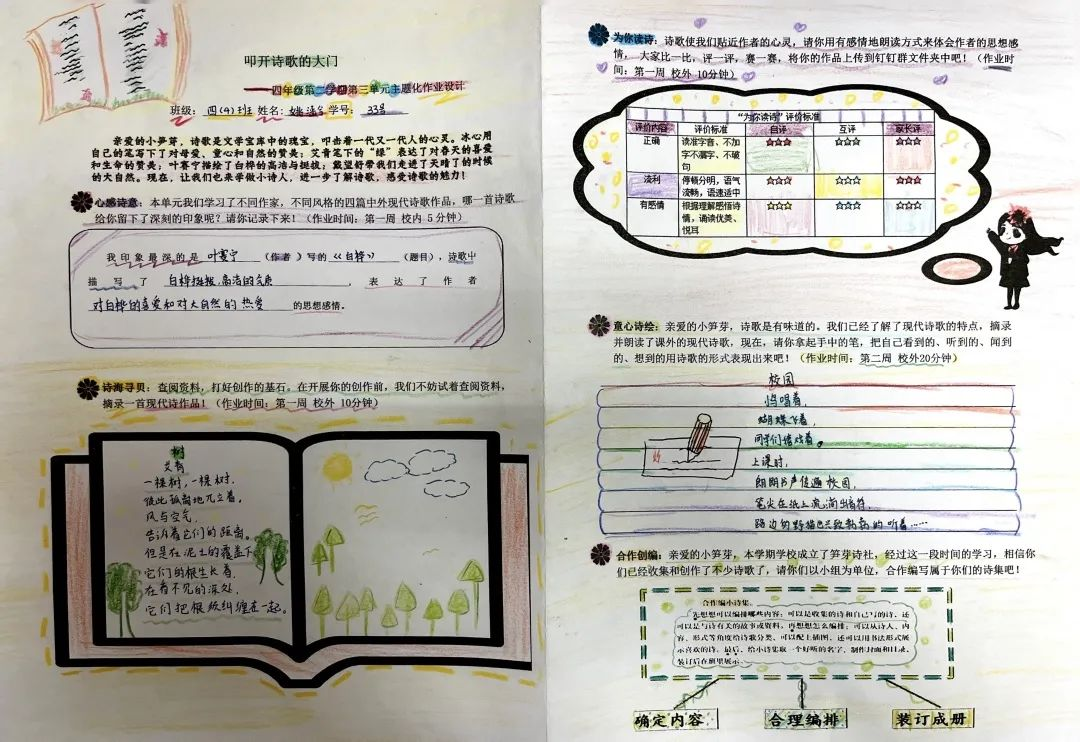 叩开诗歌的大门
四年级第二学期第三单元主题化作业设计
班级：四(4)班 姓名：姚 学号：33号
亲爱的小笋芽，诗歌是文学宝库中的瑰宝，叩击着一代又一代人的心灵。冰心用
自己的笔写下了对母爱、童心和自然的赞美；艾青笔下的“绿”表达了对春天的喜爱
和生命的赞美；叶赛宁描绘了白桦的高洁与挺拔；戴望舒带我们走进了天晴了的时候
的大自然。现在，让我们也来学做小诗人，进一步了解诗歌，感受诗歌的魅力！
心感诗意：本单元我们学习了不同作家，不同风格的四篇中外现代诗歌作品，哪一首诗歌
给你留下了深刻的印象呢？请你记录下来！（作业时间：第一周 校内 5 分钟）
我印象最深的是 叶赛宁 （作者）写的《白桦》（题目），诗歌中
描写了 白桦挺拔，高洁的气质 ，表达了作者
对白桦的喜爱和对大自然的热爱 的思想感情。
诗海寻贝：查阅资料，打好创作的基石。在开展你的创作前，我们不妨试着查阅资料，
摘录一首现代诗作品！（作业时间：第一周 校外 10分钟）
树
艾青
一棵树，一棵树，
彼此孤离地兀立着，
风与空气，
告诉着它们的距离。
但是在泥土的覆盖下
它们的根生长着，
在看不见的深处，
它们把根须纠缠在一起。
为你读诗：诗歌使我们贴近作者的心灵，请你用有感情地朗读方式来体会作者的思想感
情，大家比一比，评一评，赛一赛，将你的作品上传到钉钉群文件夹中吧！（作业时
间：第一周 校外 10分钟）
“为你读诗”评价标准
评价内容 评价标准 自评 互评 家长评
正确 读准字音、不加 ☆☆☆ ☆☆☆ ☆☆☆
字不漏字、不破
句
流利 停顿分明，语气 ☆☆☆ ☆☆☆ ☆☆☆
流畅，语速适中
有感情 根据理解感悟诗 ☆☆☆ ☆☆☆ ☆☆☆
情，诵读优美、
悦耳
童心诗绘：亲爱的小笋芽，诗歌是有味道的。我们已经了解了现代诗歌的特点，摘录
并朗读了课外的现代诗歌，现在，请你拿起手中的笔，把自己看到的、听到的、闻到
的、想到的用诗歌的形式表现出来吧！（作业时间：第二周 校外20分钟）
校园
鸟唱着，
蝴蝶飞着，
同学们嬉戏着。
上课时，
朗朗书声传遍校园，
笔尖在纸上流淌出音符
路边的野猫也兴致勃勃的听着……
合作创编：亲爱的小笋芽，本学期学校成立了笋芽诗社，经过这一段时间的学习，相信你
们已经收集和创作了不少诗歌了，请你们以小组为单位，合作编写属于你们的诗集吧！
合作编小诗集。
先想想可以编排哪些内容：可以是收集的诗和自己写的诗，还
可以是与诗有关的故事或资料。再想想怎么编排：可以从诗人、内
容、形式等角度给诗歌分类，可以配上插图，还可以用书法形式展
示喜欢的诗。最后，给小诗集取一个好听的名字，制作封面和目录，
装订后在班里展示。
确定内容 合理编排 装订成册